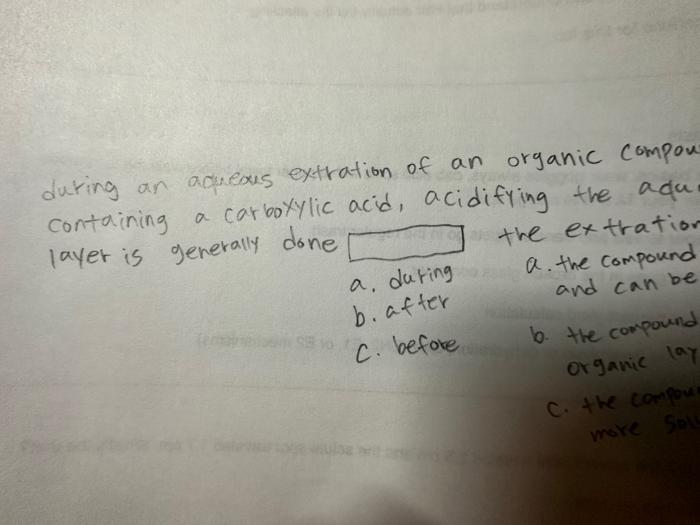 during an aqueous extration of an organic compou
containing a carboxylic acid, acidifying the aqu
layer is generally done the extration
a. during
b. after
c. before
a. the compound
and can be
b. the compound
organic lay
c. the compou
more Sol